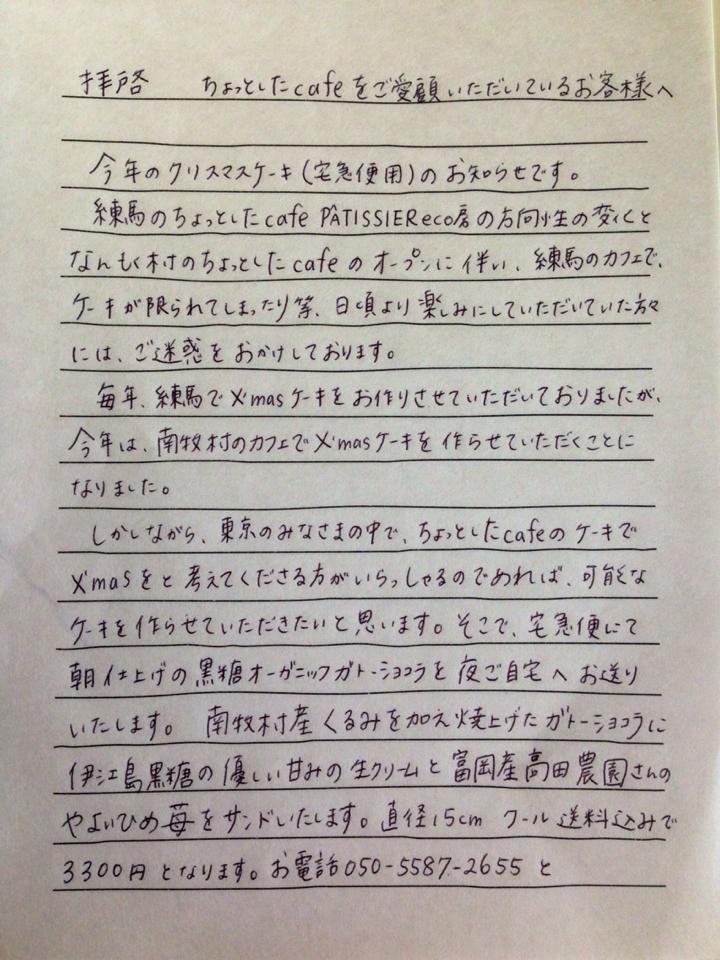 拝啓　　ちょっとしたcafeをご愛顧いただいているお客様へ
今年のクリスマスケーキ(宅急便用)のお知らせです。
練馬のちょっとしたcafe PÂTISSIEReco房の方向性の変化と
なんもく村のちょっとしたcafeのオープンに伴い、練馬のカフェで、
ケーキが限られてしまったり等、日頃より楽しみにしていただいていた方々
には、ご迷惑をおかけしております。
毎年、練馬でX'masケーキをお作りさせていただいておりましたが、
今年は、南牧村のカフェでX'masケーキを作らせていただくことに
なりました。
しかしながら、東京のみなさまの中で、ちょっとしたcafeのケーキで
X'masをと考えてくださる方がいらっしゃるのであれば、可能な
ケーキを作らせていただきたいと思います。そこで、宅急便にて
朝仕上げの黒糖オーガニックガトーショコラを夜ご自宅へお送り
いたします。　南牧村産くるみを加え焼上げたガトーショコラに
伊江島黒糖の優しい甘みの生クリームと富岡産高田農園さんの
やよいひめ苺をサンドいたします。直径15cm クール送料込みで
3300円となります。お電話050-5587-2655と